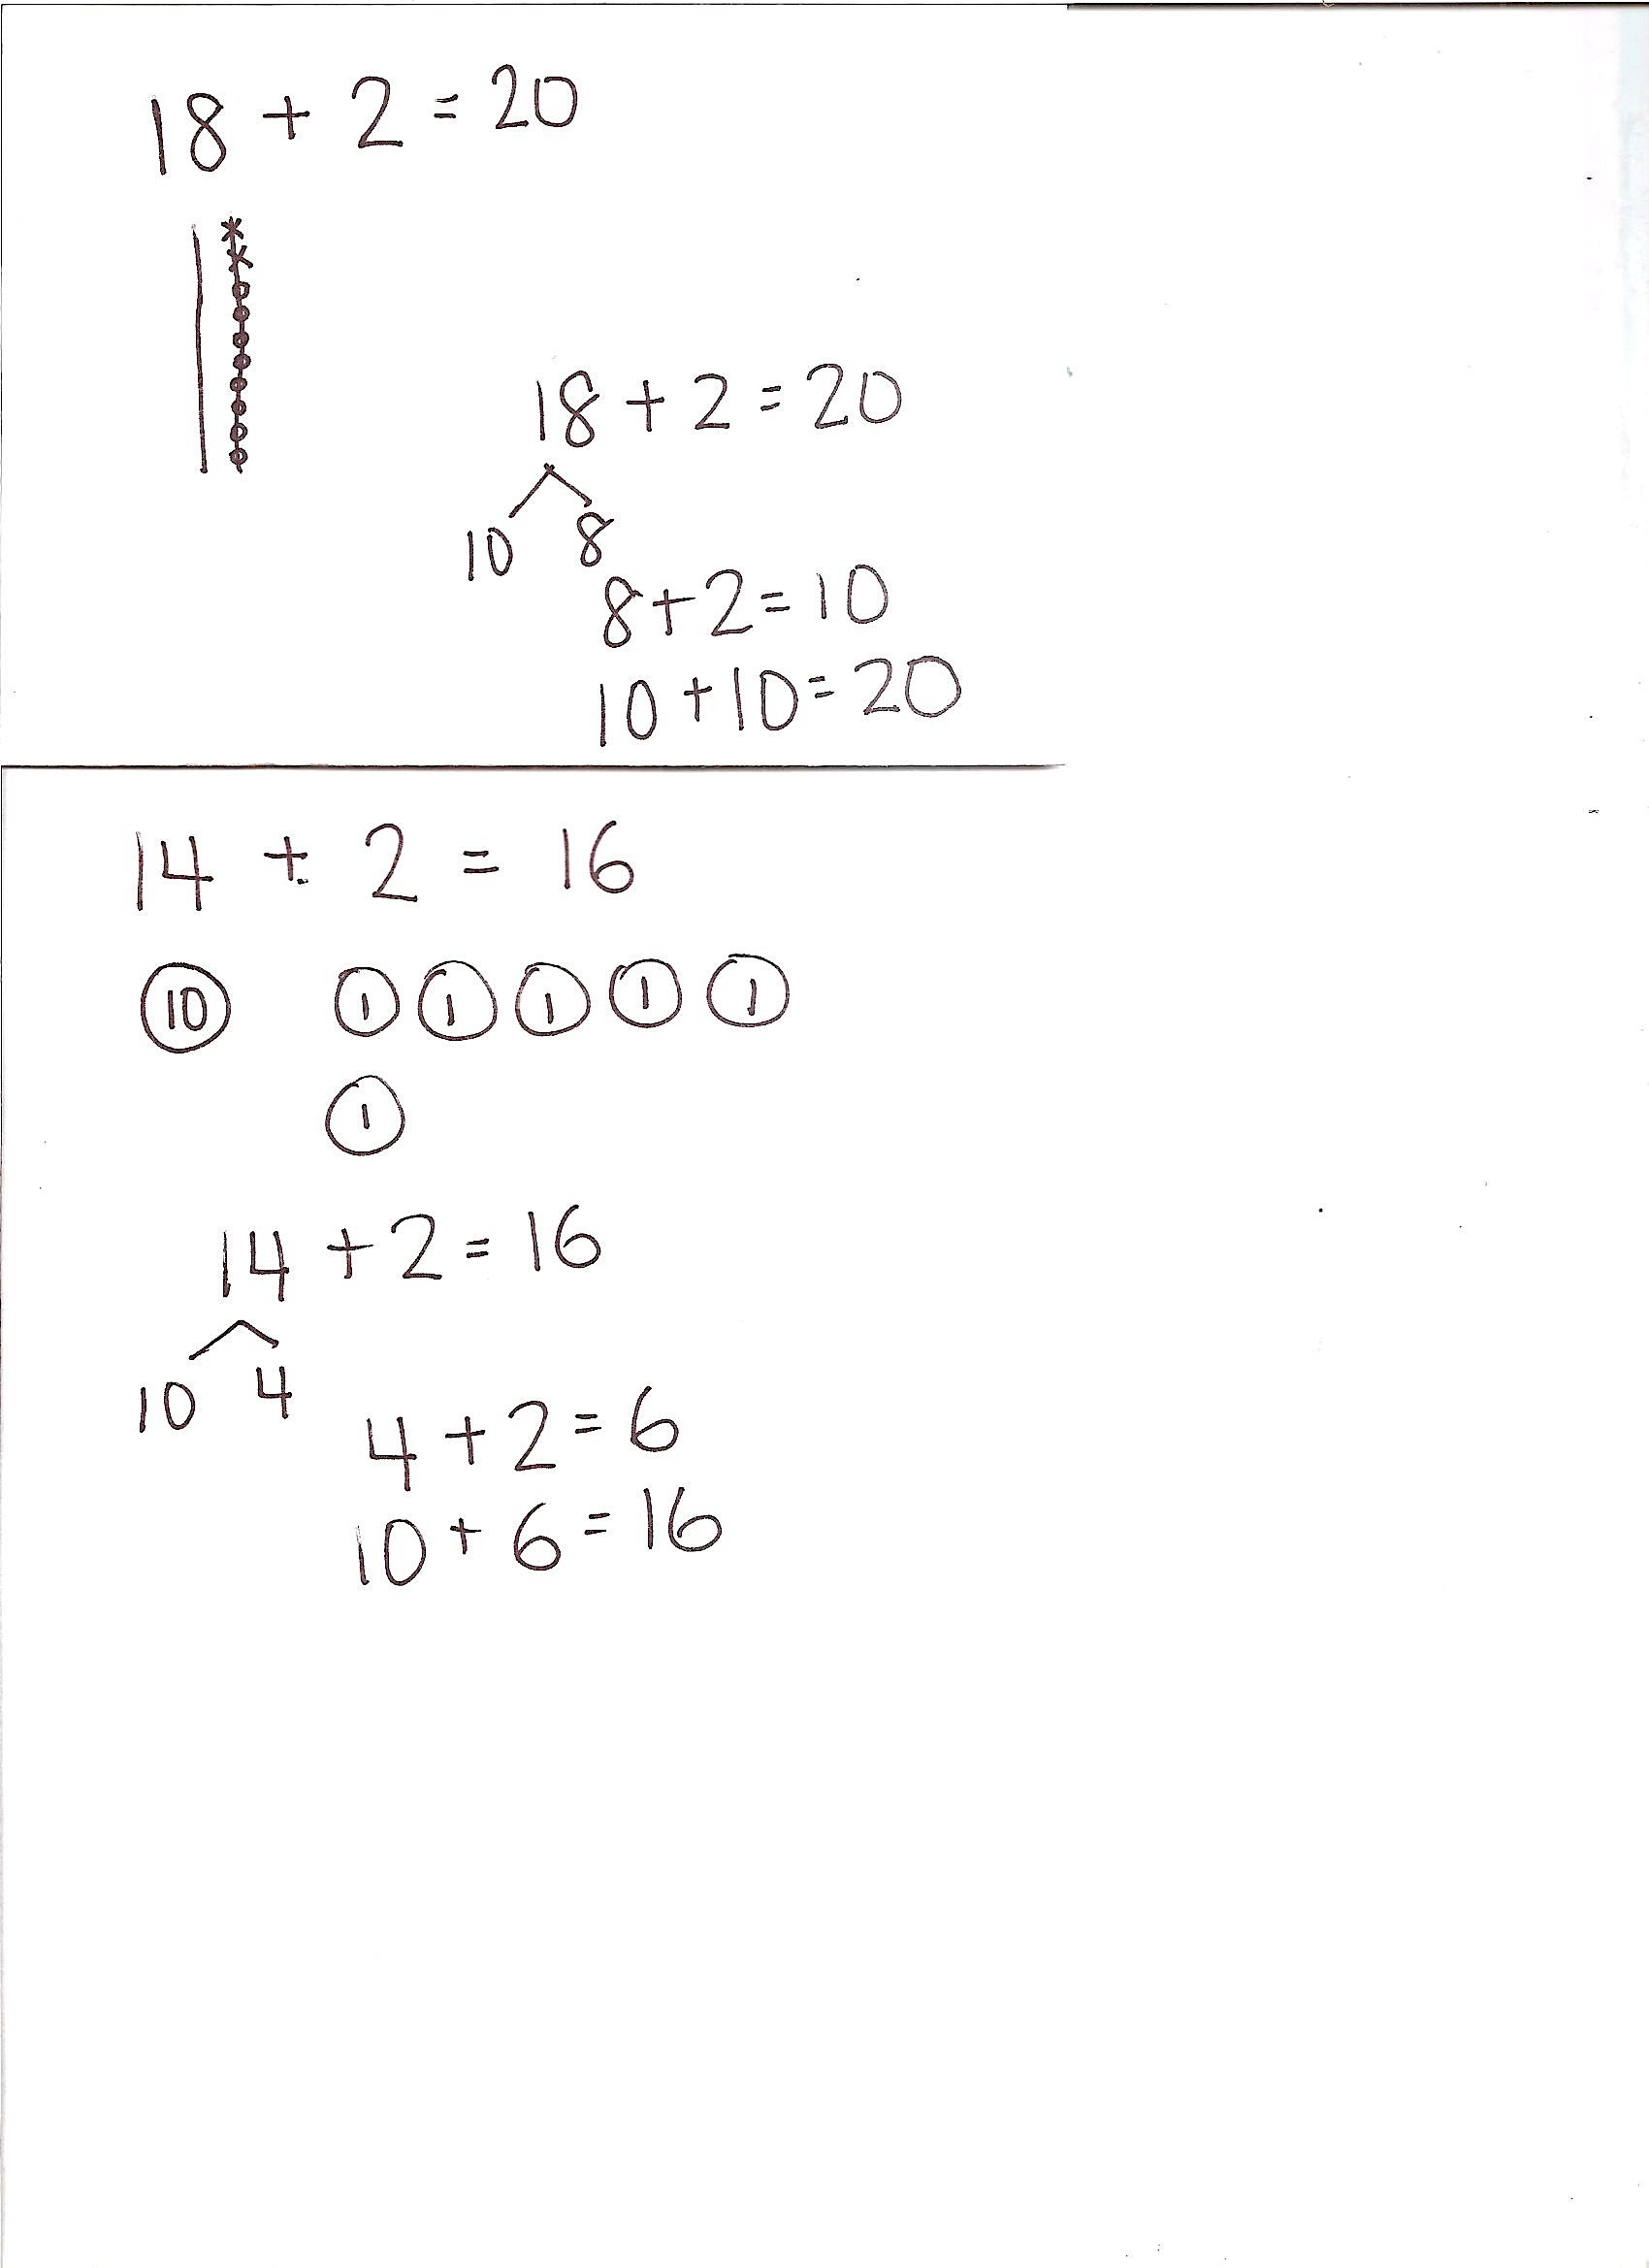 18 + 2 = 20
18 + 2 = 20
10 8
8 + 2 = 10
10 + 10 = 20
14 + 2 = 16
10 1 1 1 1 1
1
14 + 2 = 16
10 4
4 + 2 = 6
10 + 6 = 16